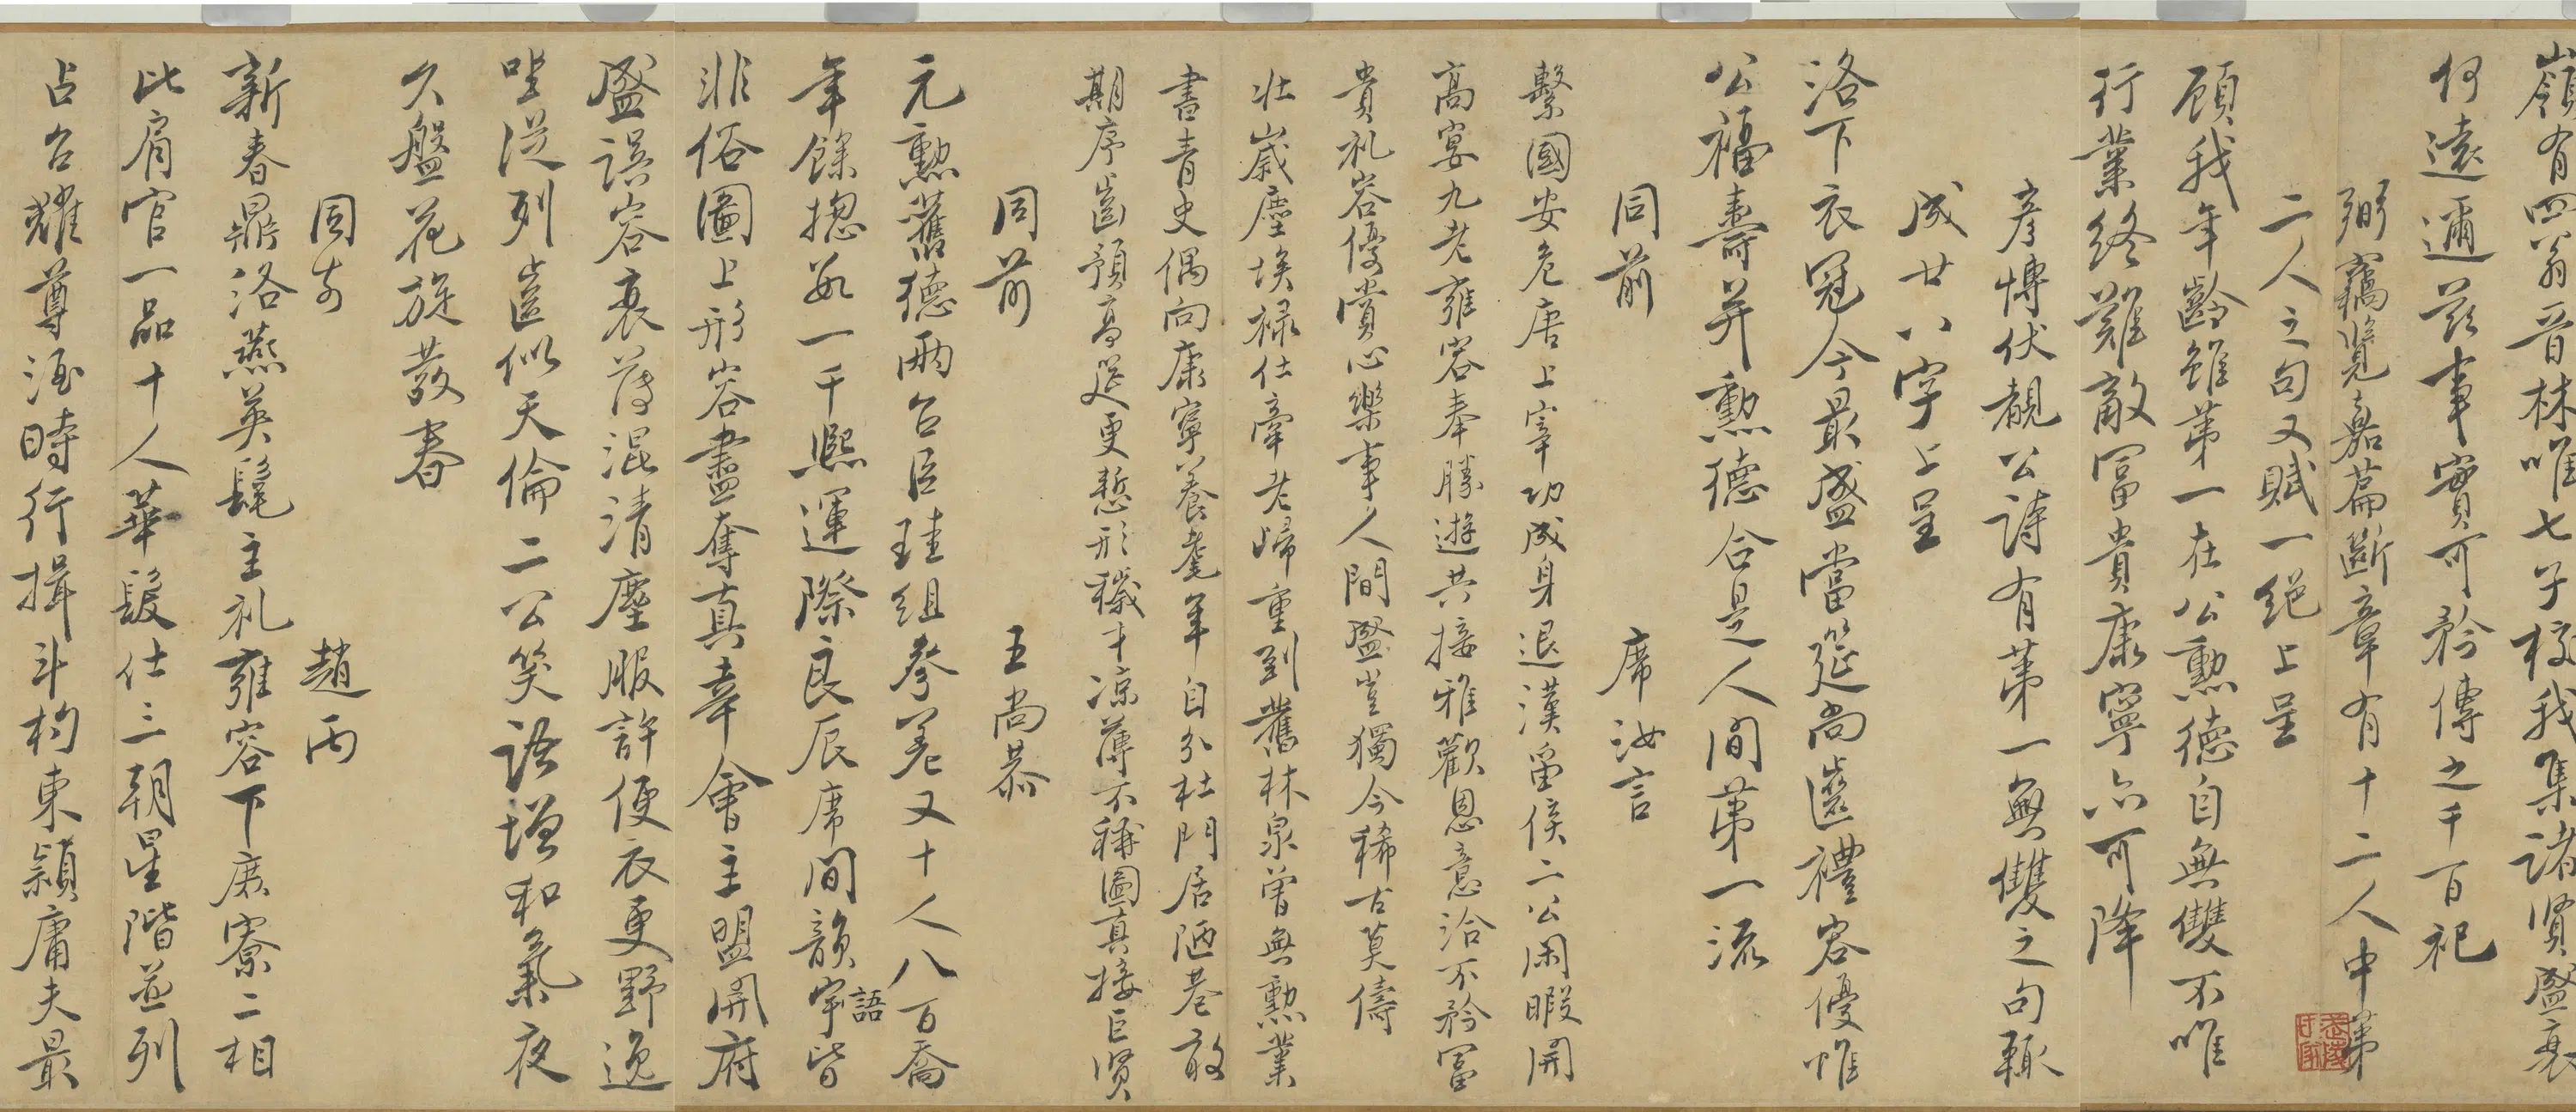 嶺有四翁晉林唯七子校我集諸賢盛衰
何遠邇茲事實可矜傳之千百祀
弼竊覽嘉篇斷章有十二人中第
二人之句又賦一絕上呈
顧我年齡雖第一在公勲德自無雙不唯
行業終難敵冨貴康寧亦可降
彥愽伏覩公詩有第一無雙之句輙
成廿八字上呈
洛下衣冠今最盛當筵尚齒禮容優惟
公福壽并勲德合是人間第一流
同前
席汝言
繫國安危唐上宰功成身退漢留侯二公閑暇開
高宴九老雍容奉勝遊共接雅歡恩意洽不矜冨
貴礼容優賞心樂事人間盛豈獨今稀古莫儔
壮歲塵埃禄仕牽老歸重到舊林泉曽無勲業
書青史偶向康寧養耄年自分杜門居陋巷敢
期序齒預髙筵更慙形穢才凉薄不稱圖真接巨賢
同前
王尚恭
元勲舊德兩台臣珪組參差又十人八百喬
年餘揔數一千熙運際良辰席間韻語皆
非俗圖上形容盡奪真幸會主盟開府
盛誤容衰薄混清塵服許便衣更野逸
坐従列齒似天倫二公笑語增和氣夜
久盤花旋發春
同前
趙丙
新春鼎洛燕英髦主礼雍容下庶寮二相
比肩官一品十人華髮仕三朝星階並列
占台耀尊酒時行揖斗杓東潁庸夫最